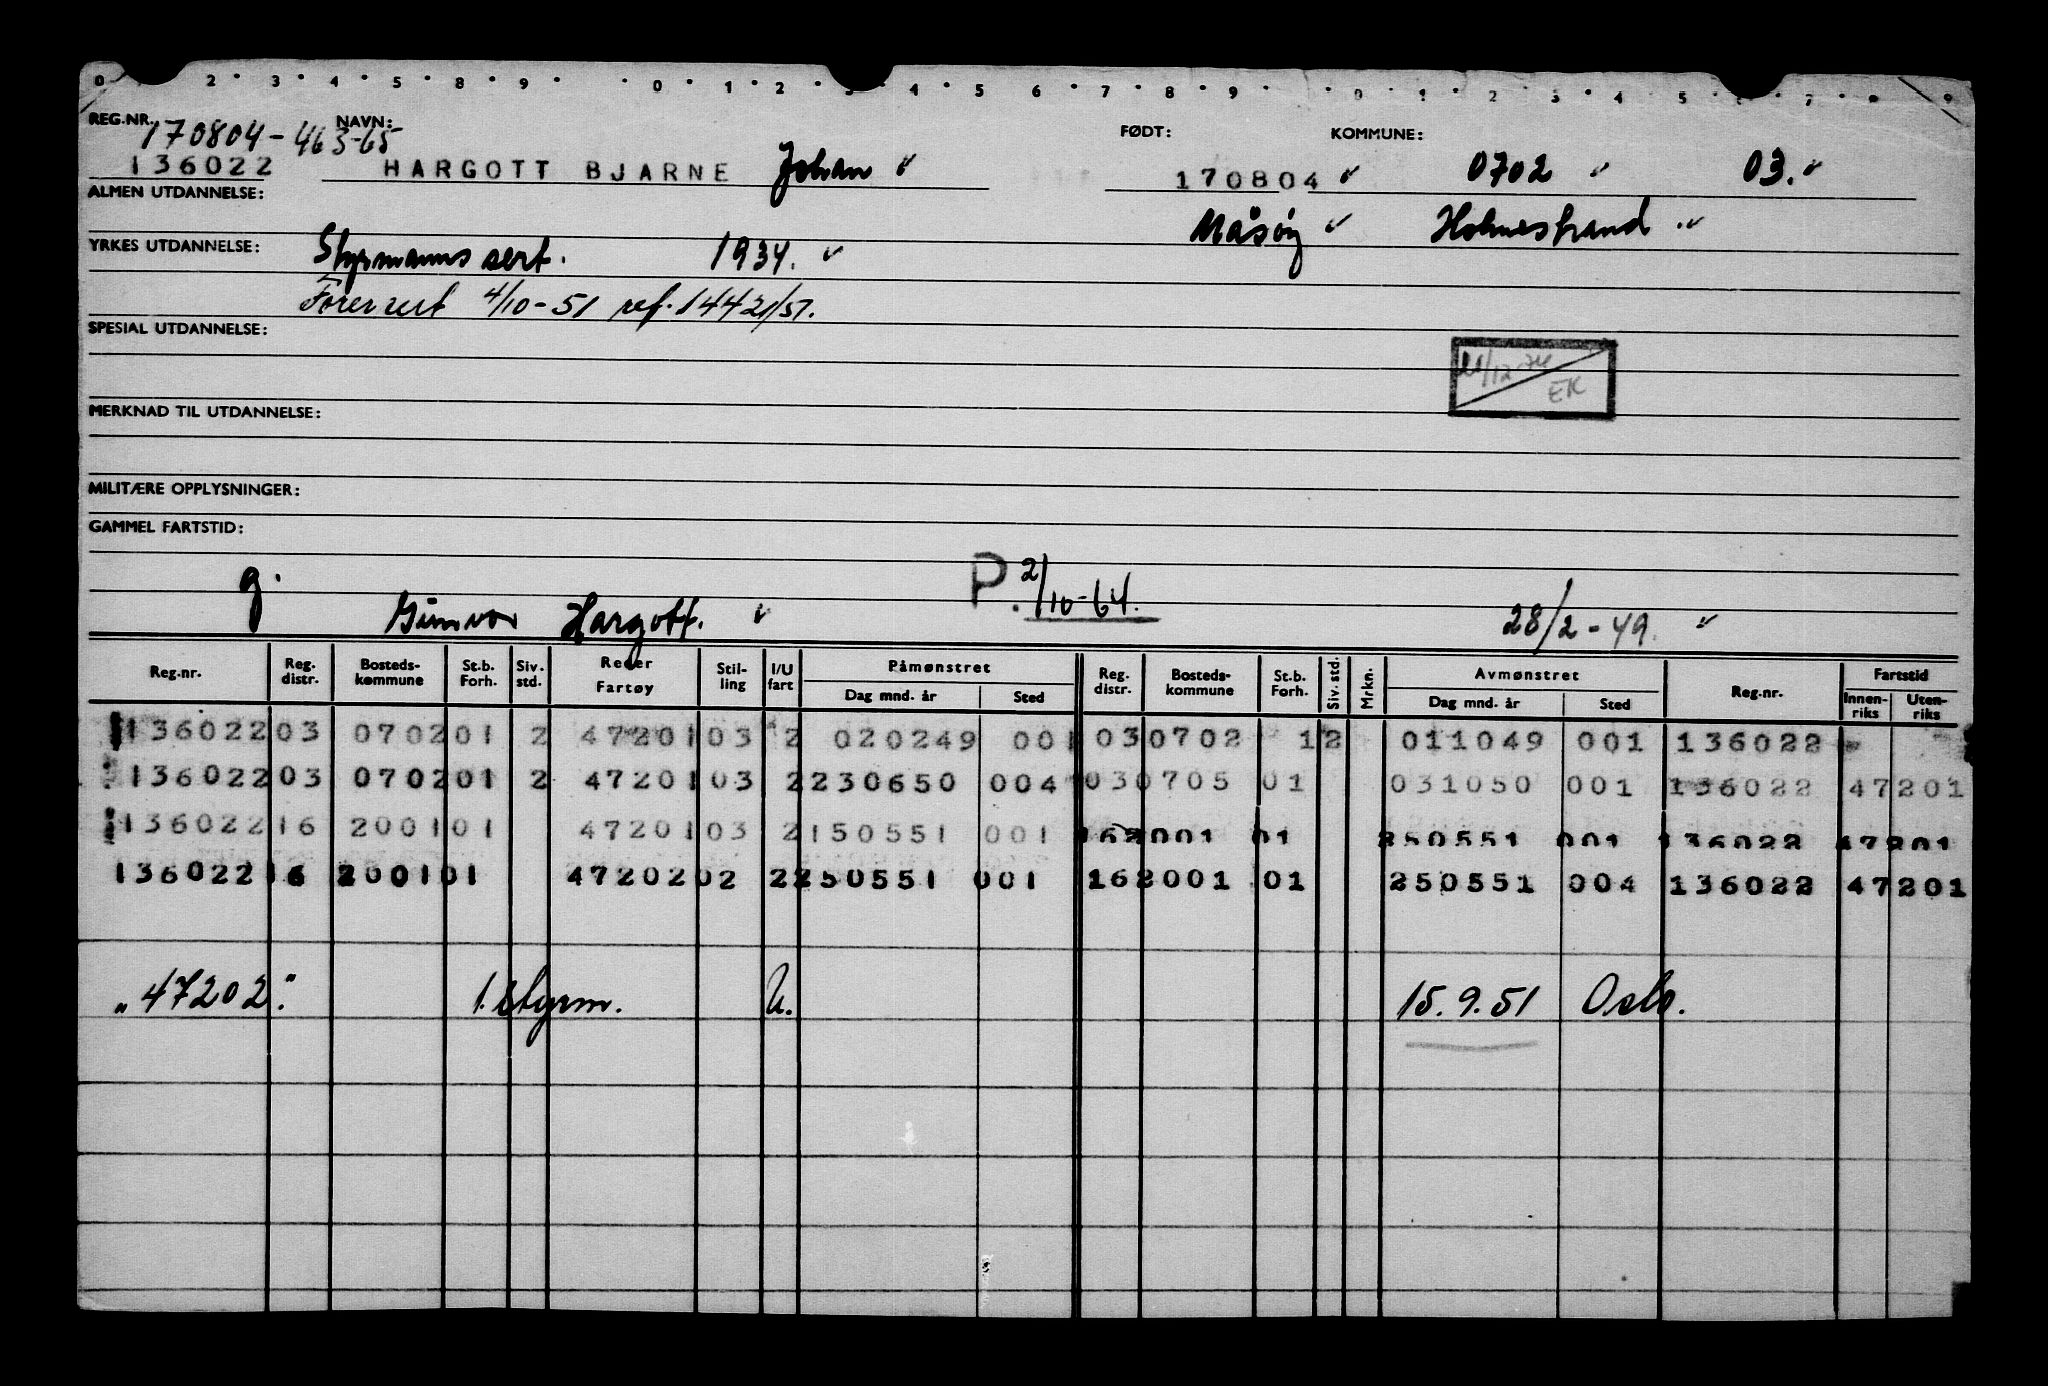 0 2 3 4 5 8 9 0 1 2 3 4 5 6 7 8 9 0 1 2 3 4 5 6 7 8 9
REG.NR. 170804-463-65 NAVN: FØDT: KOMMUNE:
136022 HARGOTT BJARNE Johan 170804 0702 03.
ALMEN UTDANNELSE:
Måsøy Holmestrand
YRKES UTDANNELSE: Styrmanns sert. 1934.
Førersert 4/10-51 ref. 14421/51.
SPESIAL UTDANNELSE:
/12-74 EK
MERKNAD TIL UTDANNELSE:
MILITÆRE OPPLYSNINGER:
GAMMEL FARTSTID:
g. P. 2/10-64.
Gunvor Hargott. 28/2-49.
Reg.nr. Reg. distr. Bosteds-kommune St.b. Forh. Siv. std. Reder Fartøy Stil-ling I/U fart Påmønstret Dag mnd. år Sted Reg. distr. Bosteds-kommune St.b. Forh. Siv. std. Mrkn. Avmønstret Dag mnd. år Sted Reg.nr. Fartstid Innen-riks Uten-riks
136022 03 0702 01 2 47201 03 2 020249 001 03 0702 1 2 011049 001 136022
136022 03 0702 01 2 47201 03 2 230650 004 03 0705 01 031050 001 136022 47201
136022 16 2001 01 47201 03 2 150551 001 16 2001 01 250551 001 136022 47201
136022 16 2001 01 47202 02 2 250551 001 16 2001 01 250551 004 136022 47201
"47202." 1. styrm. U. 15.9.51 Oslo.